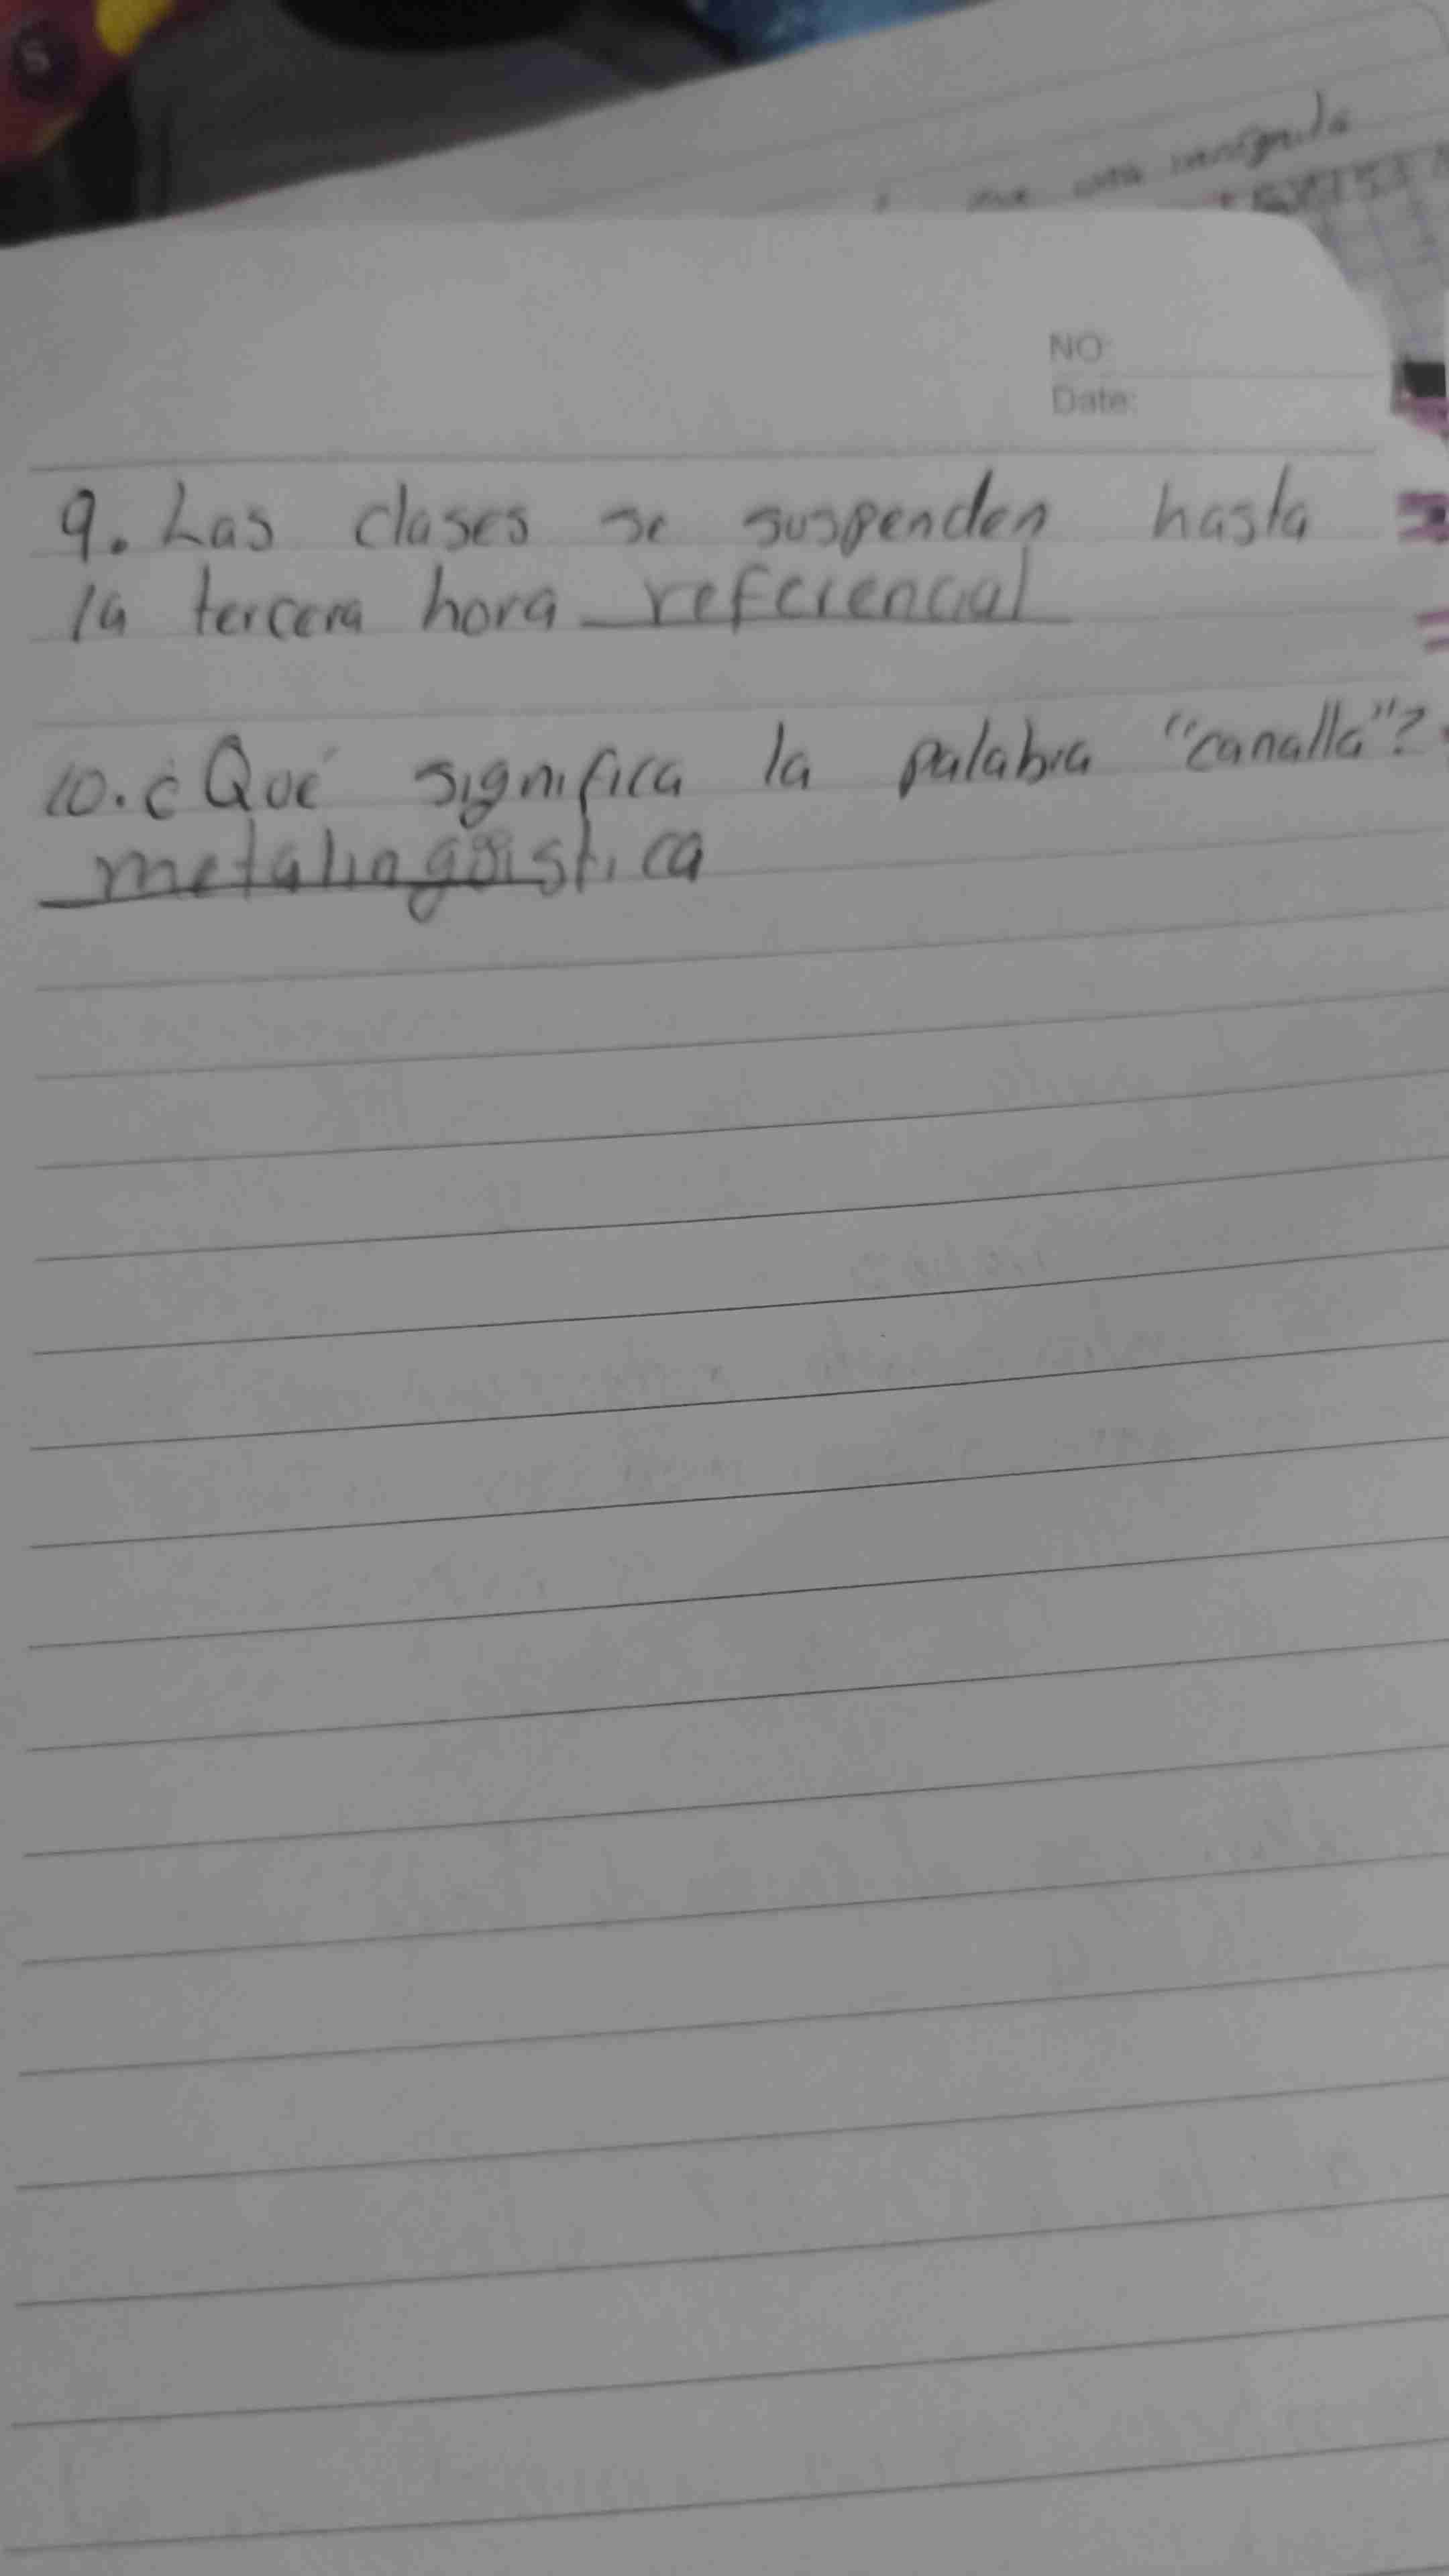 una incógnita
NO:
Date:
9. Las clases se suspenden hasta
la tercera hora referencial
10. ¿Qué significa la palabra "canalla"?
metalingüística